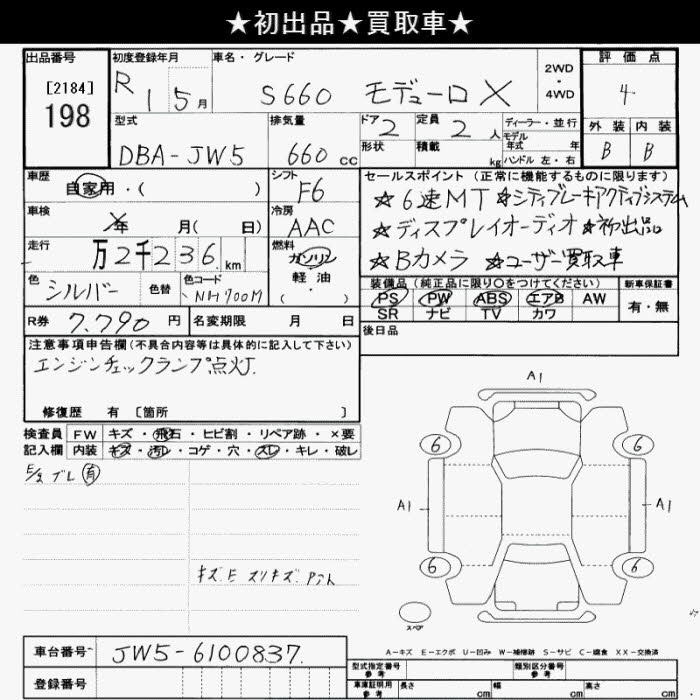 ★初出品★買取車★
出品番号 初度登録年月 車名・グレード 2WD・4WD 評価点
[2184]
198
R 1 5月 S660 モデューロX 4
型式 排気量 ドア 定員 ディーラー・並行 外装 内装
DBA-JW5 660cc 2 2人 モデル年式 年 B B
形状 積載 kg ハンドル 左・右
車歴 シフト セールスポイント(正常に機能するものに限ります)
自家用・( ) F6 ☆6速MT ☆シティブレーキアクティブシステム
車検 冷房 ☆ディスプレイオーディオ ☆初出品
年 月( 日) AAC ☆Bカメラ ☆ユーザー買取車
走行 燃料
万2千236km ガソリン
軽油
( ・ )
色 色替 色コード 装備品(純正品に限り○をつけてください) 新車保証書
シルバー NH700M PS PW ABS エアB AW 有・無
SR ナビ TV カワ
R券 7,790円 名変期限 月 日 後日品
注意事項申告欄(不具合内容等は具体的に記入して下さい)
エンジンチェックランプ点灯.
修復歴 有 [箇所 ]
検査員 FW キズ・飛石・ヒビ割・リペア跡・×要
記入欄 内装 キズ・汚レ・コゲ・穴・スレ・キレ・破レ
ブレ 有
キズ.E スリキズ.アァト
A1
6 6
A1 A1
6 6
スペア
A-キズ E-エクボ U-凹み W-補修跡 S-サビ C-腐食 XX-交換済
車台番号 JW5-6100837.
登録番号
型式指定番号参考 類別区分番号参考
車庫証明用参考 長さ cm 幅 cm 高さ cm